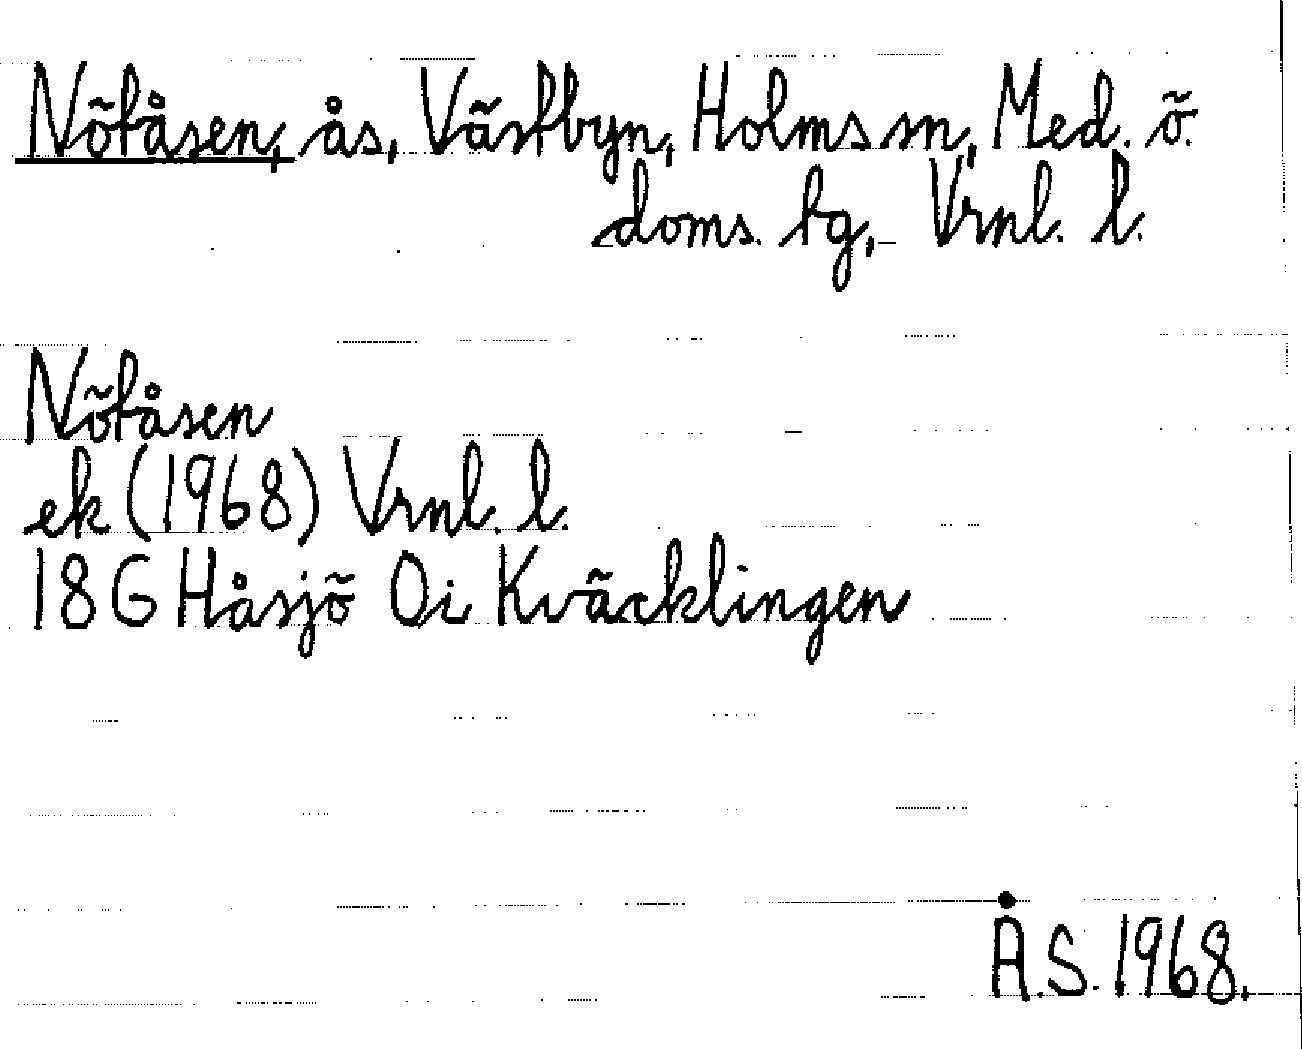 Nötåsen, ås, Västbyn, Holms sn, Med. ö.
doms. tg, Vrnl. l.
Nötåsen
ek (1968) Vrnl. l.
18G Håsjö Oi Kväcklingen
Å.S. 1968.